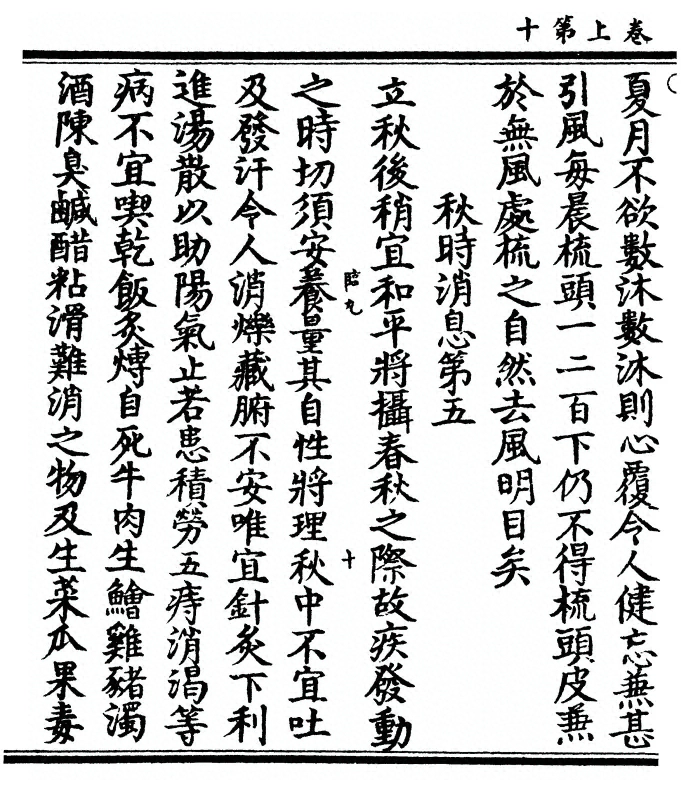 卷上第十
夏月不欲數沐數沐則心覆令人健忘兼甚
引風每晨梳頭一二百下仍不得梳頭皮兼
於無風處梳之自然去風明目矣
秋時消息第五
立秋後稍宜和平將攝春秋之際故疾發動
之時切須安養量其自性將理秋中不宜吐
及發汗令人消爍藏腑不安唯宜針炙下利
進湯散以助陽氣止若患積勞五痔消渴等
病不宜喫乾飯炙煿自死牛肉生鱠雞豬濁
酒陳臭鹹醋粘滑難消之物及生菜瓜果毒
十